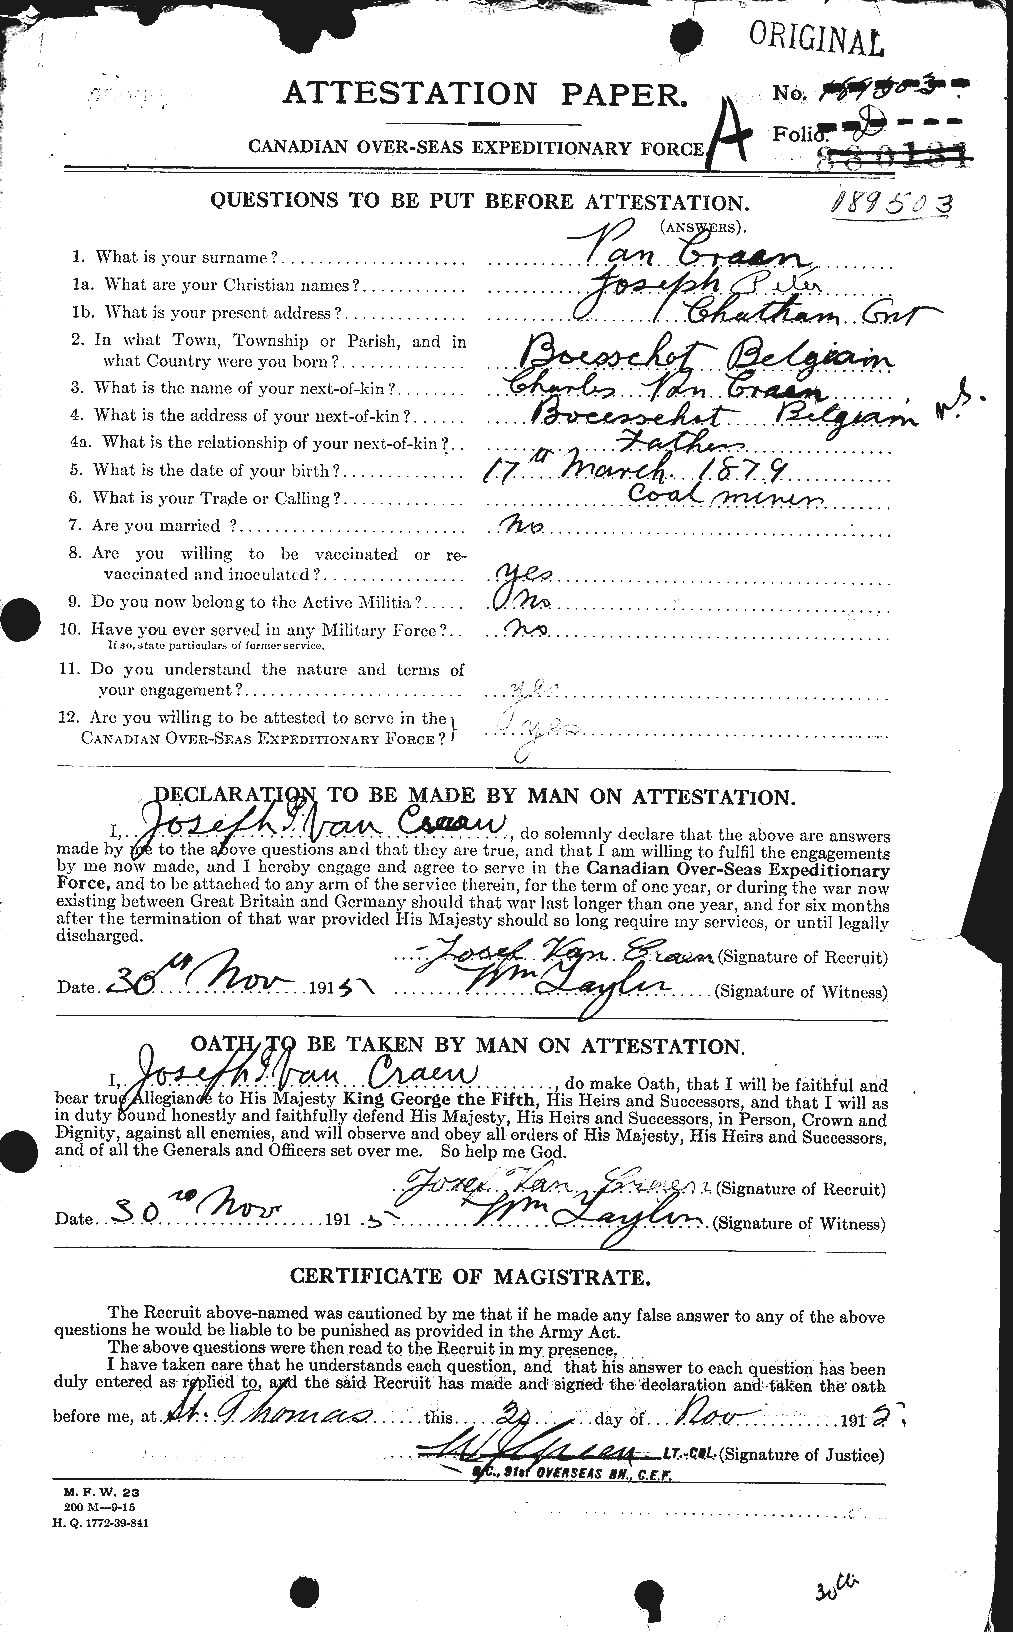 ORIGINAL
ATTESTATION PAPER.
No. 189503
Folio.
A
CANADIAN OVER-SEAS EXPEDITIONARY FORCE
QUESTIONS TO BE PUT BEFORE ATTESTATION.
189503
(ANSWERS).
1. What is your surname? Van Craen
1a. What are your Christian names? Joseph Peter
1b. What is your present address? Chatham Ont
2. In what Town, Township or Parish, and in
what Country were you born? Boesschot Belgiam
3. What is the name of your next-of-kin? Charles Van Craen
4. What is the address of your next-of-kin? Bocesschot Belgiam
4a. What is the relationship of your next-of-kin? Father
5. What is the date of your birth? 17th March 1879
6. What is your Trade or Calling? Coal miner
7. Are you married? no
8. Are you willing to be vaccinated or re-
vaccinated and inoculated? yes
9. Do you now belong to the Active Militia? no
10. Have you ever served in any Military Force? no
If so, state particulars of former service.
11. Do you understand the nature and terms of
your engagement? yes
12. Are you willing to be attested to serve in the
CANADIAN OVER-SEAS EXPEDITIONARY FORCE? yes
DECLARATION TO BE MADE BY MAN ON ATTESTATION.
I, Joseph P Van Craen, do solemnly declare that the above are answers
made by me to the above questions and that they are true, and that I am willing to fulfil the engagements
by me now made, and I hereby engage and agree to serve in the Canadian Over-Seas Expeditionary
Force, and to be attached to any arm of the service therein, for the term of one year, or during the war now
existing between Great Britain and Germany should that war last longer than one year, and for six months
after the termination of that war provided His Majesty should so long require my services, or until legally
discharged.
Josef Van Craen (Signature of Recruit)
Date 30th Nov 1915 Wm Taylor (Signature of Witness)
OATH TO BE TAKEN BY MAN ON ATTESTATION.
I, Joseph P Van Craen, do make Oath, that I will be faithful and
bear true Allegiance to His Majesty King George the Fifth, His Heirs and Successors, and that I will as
in duty bound honestly and faithfully defend His Majesty, His Heirs and Successors, in Person, Crown and
Dignity, against all enemies, and will observe and obey all orders of His Majesty, His Heirs and Successors,
and of all the Generals and Officers set over me. So help me God.
Josef Van Craen (Signature of Recruit)
Date 30th Nov 1915 Wm Taylor (Signature of Witness)
CERTIFICATE OF MAGISTRATE.
The Recruit above-named was cautioned by me that if he made any false answer to any of the above
questions he would be liable to be punished as provided in the Army Act.
The above questions were then read to the Recruit in my presence.
I have taken care that he understands each question, and that his answer to each question has been
duly entered as replied to, and the said Recruit has made and signed the declaration and taken the oath
before me, at St. Thomas this 30 day of Nov 1915.
LT.-COL. (Signature of Justice)
O.C., 91st OVERSEAS BN., C.E.F.
M. F. W. 23
200 M—9-15
H. Q. 1772-39-841
30th